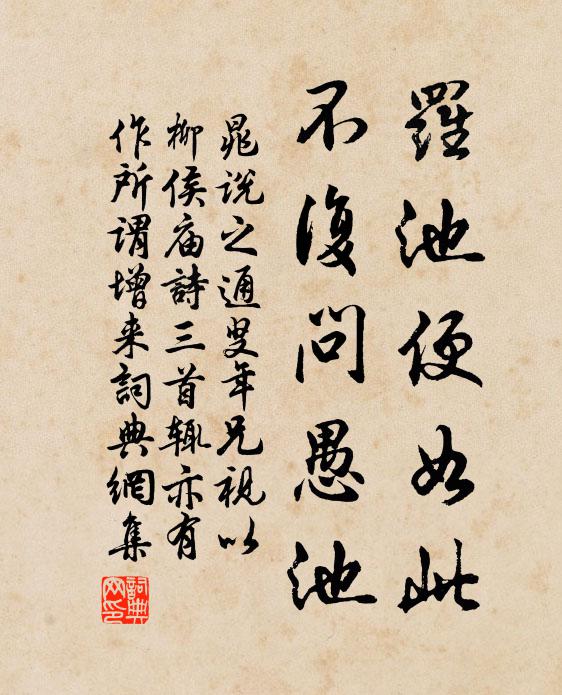 羅池便如此
不復問愚池
晁說之通叟年兄視以
柳侯廟詩三首輒亦有
作所謂增来詞典網集
詞典
网印